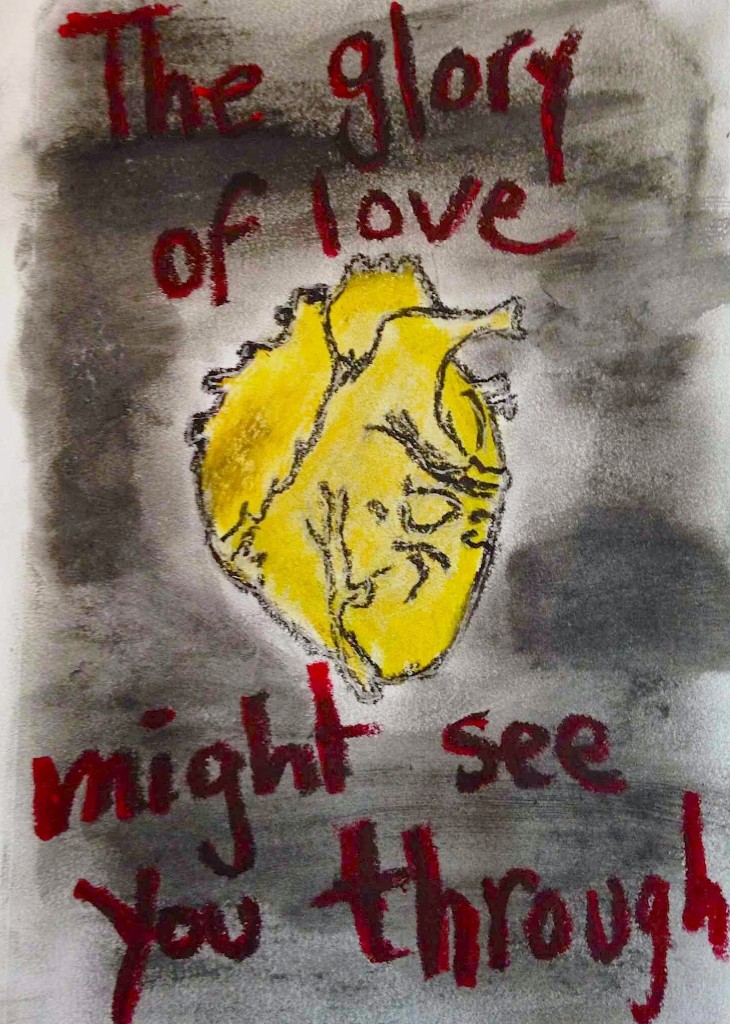 The glory
of love
might see
you through